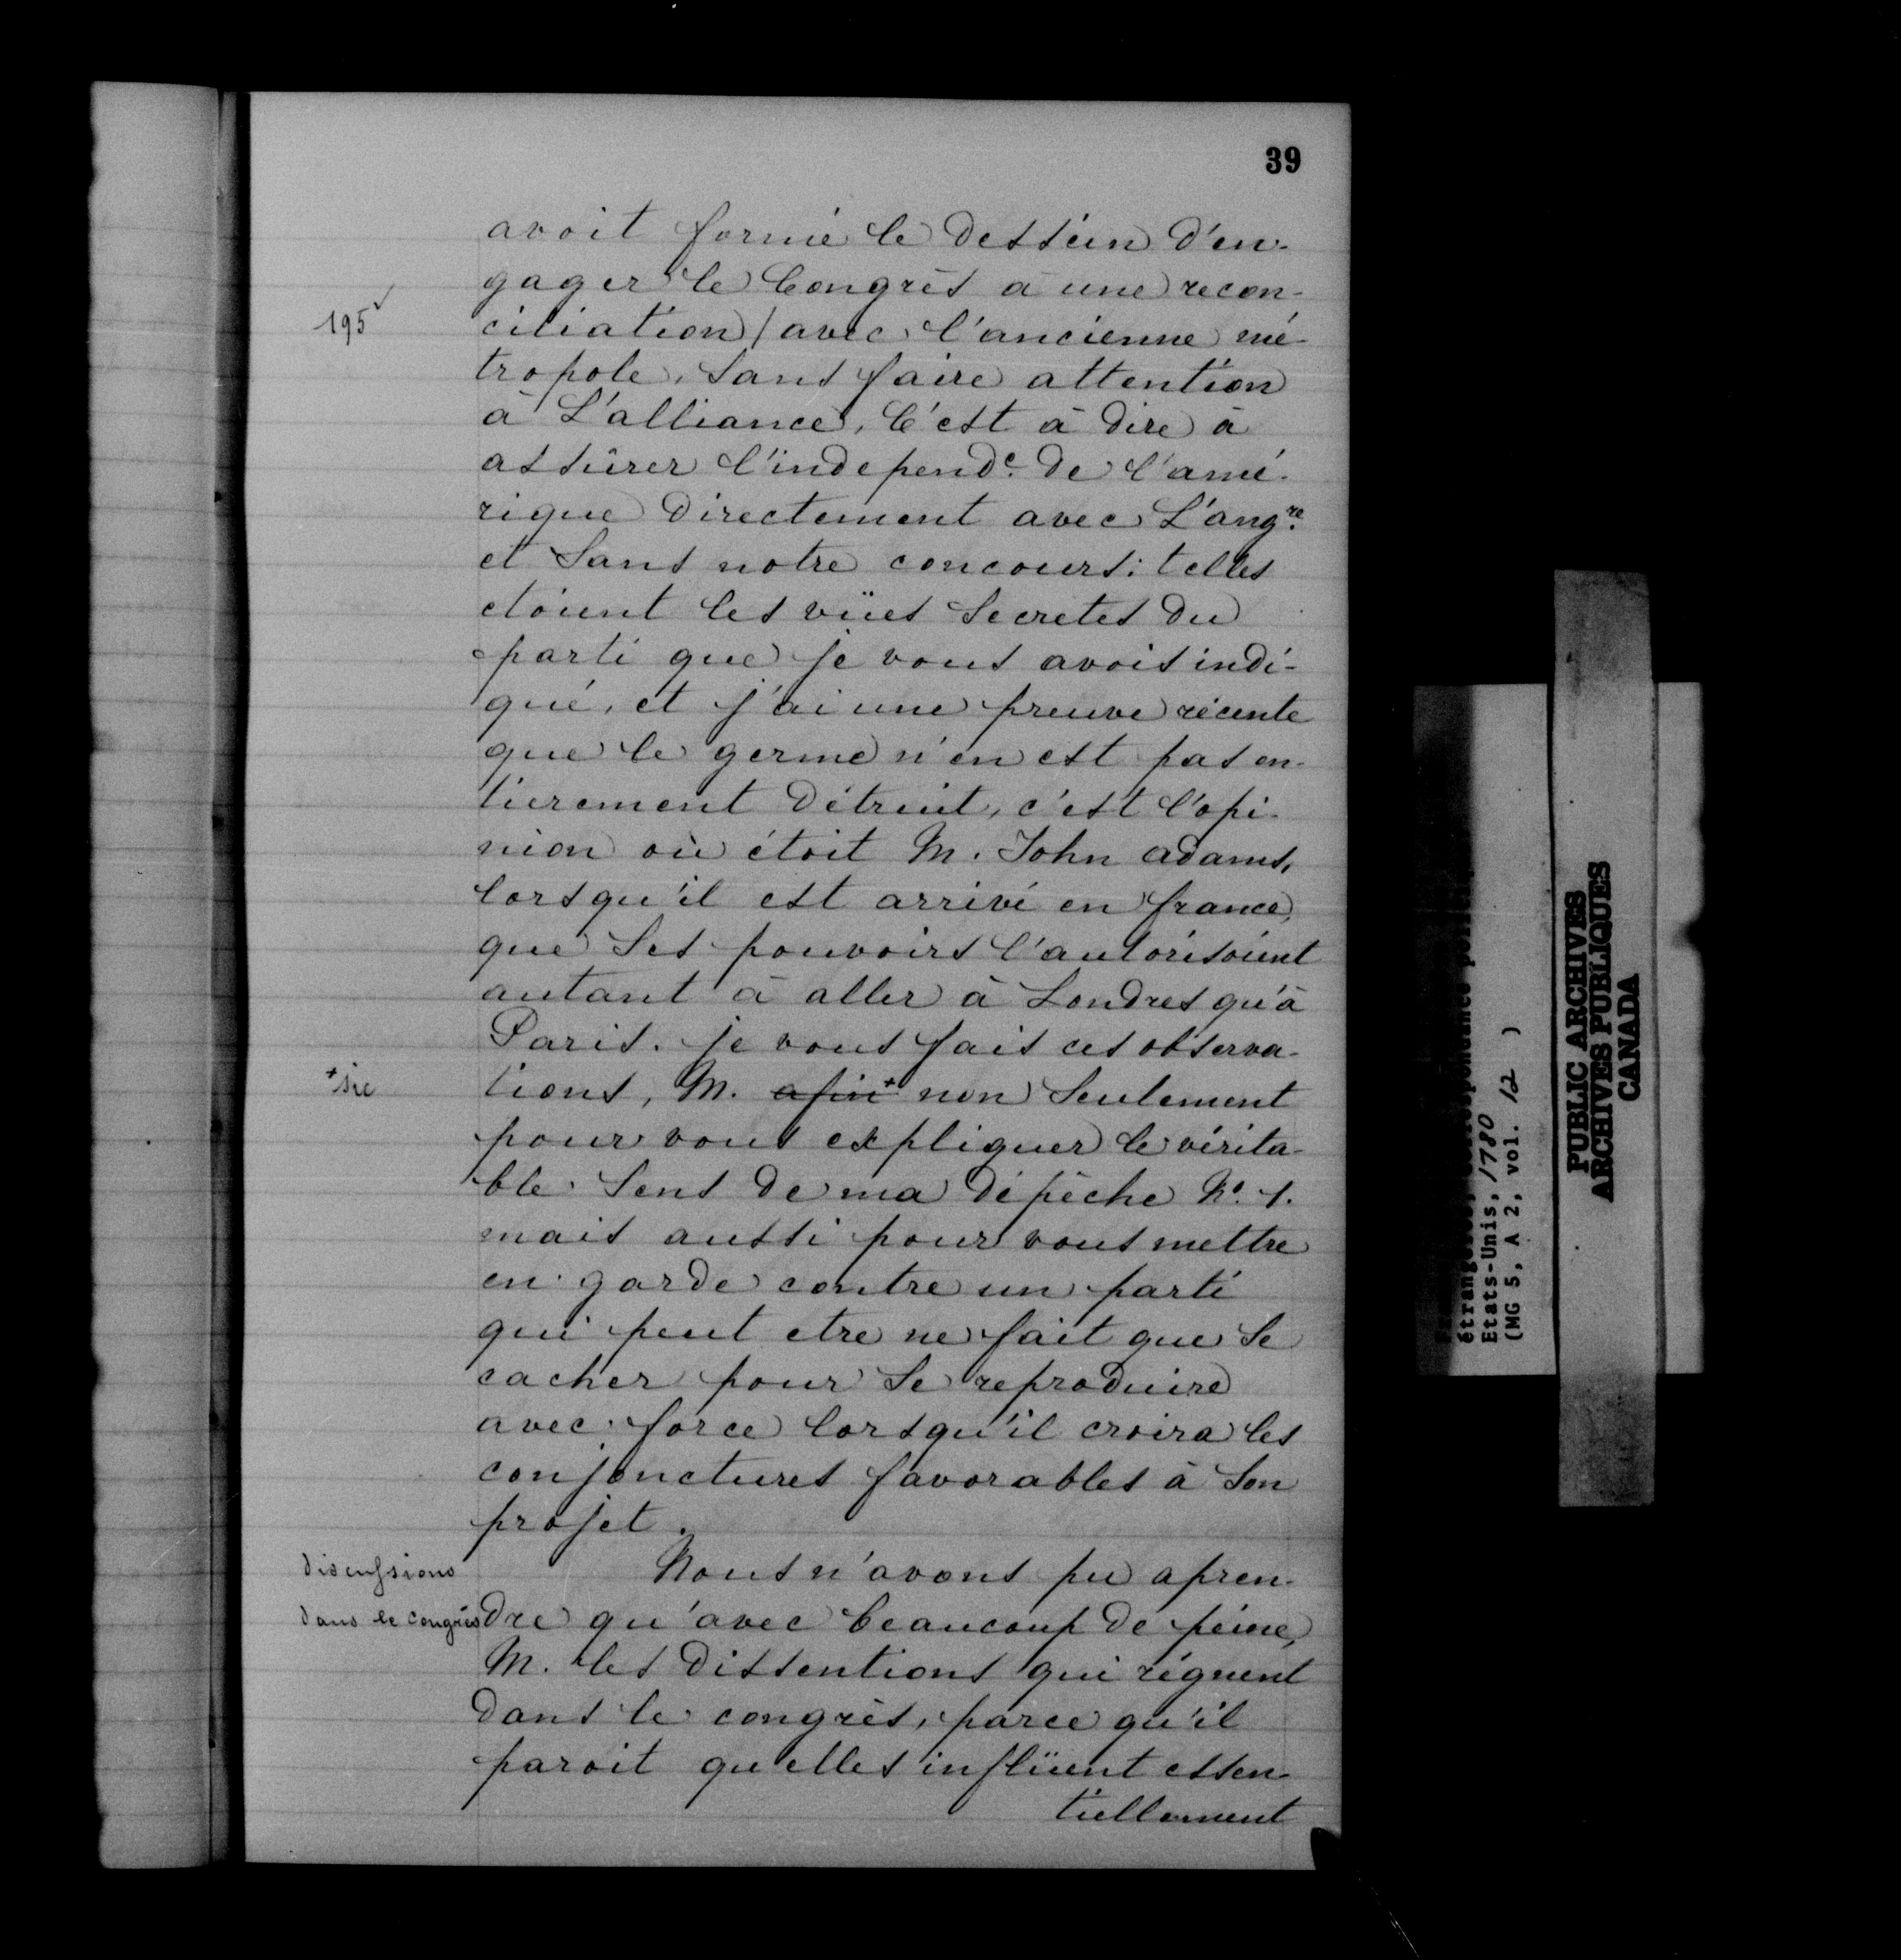 39
avoit formé le dessein d'en-
gager le Congrès à une recon-
195 ✓
ciliation / avec l'ancienne mé-
tropole, Sans faire attention
à L'alliance, C'est à dire à
assûrer l'independce. de l'amé-
rique directement avec L'angre.
et Sans notre concours: telles
etoient les vües Secretes du
parti que je vous avois indi-
qué, et j'ai une preuve récente
que le germe n'en est pas en-
tierement détruit, c'est l'opi-
nion où étoit M. John adams,
lorsqu'il est arrivé en france,
que Ses pouvoirs l'autorisoient
autant à aller à Londres qu'à
Paris. je vous fais ces observa-
+sic
tions, M. afin+ non Seulement
pour vous expliquer le vérita-
ble Sens de ma dépêche No. 1.
mais aussi pour vous mettre
en garde contre un parti
qui peut etre ne fait que Se
cacher pour Se reproduire
avec force lorsqu'il croira les
conjonctures favorables à Son
projet.
discussions
dans le congrès
Nous n'avons pu apren-
dre qu'avec beaucoup de peine,
M. les dissentions qui régnent
dans le congrès, parce qu'il
paroit qu'elles influent essen-
tiellement
étrangères, correspondance
Etats-Unis, 1780
(MG 5, A 2, vol. 12 )
PUBLIC ARCHIVES
ARCHIVES PUBLIQUES
CANADA